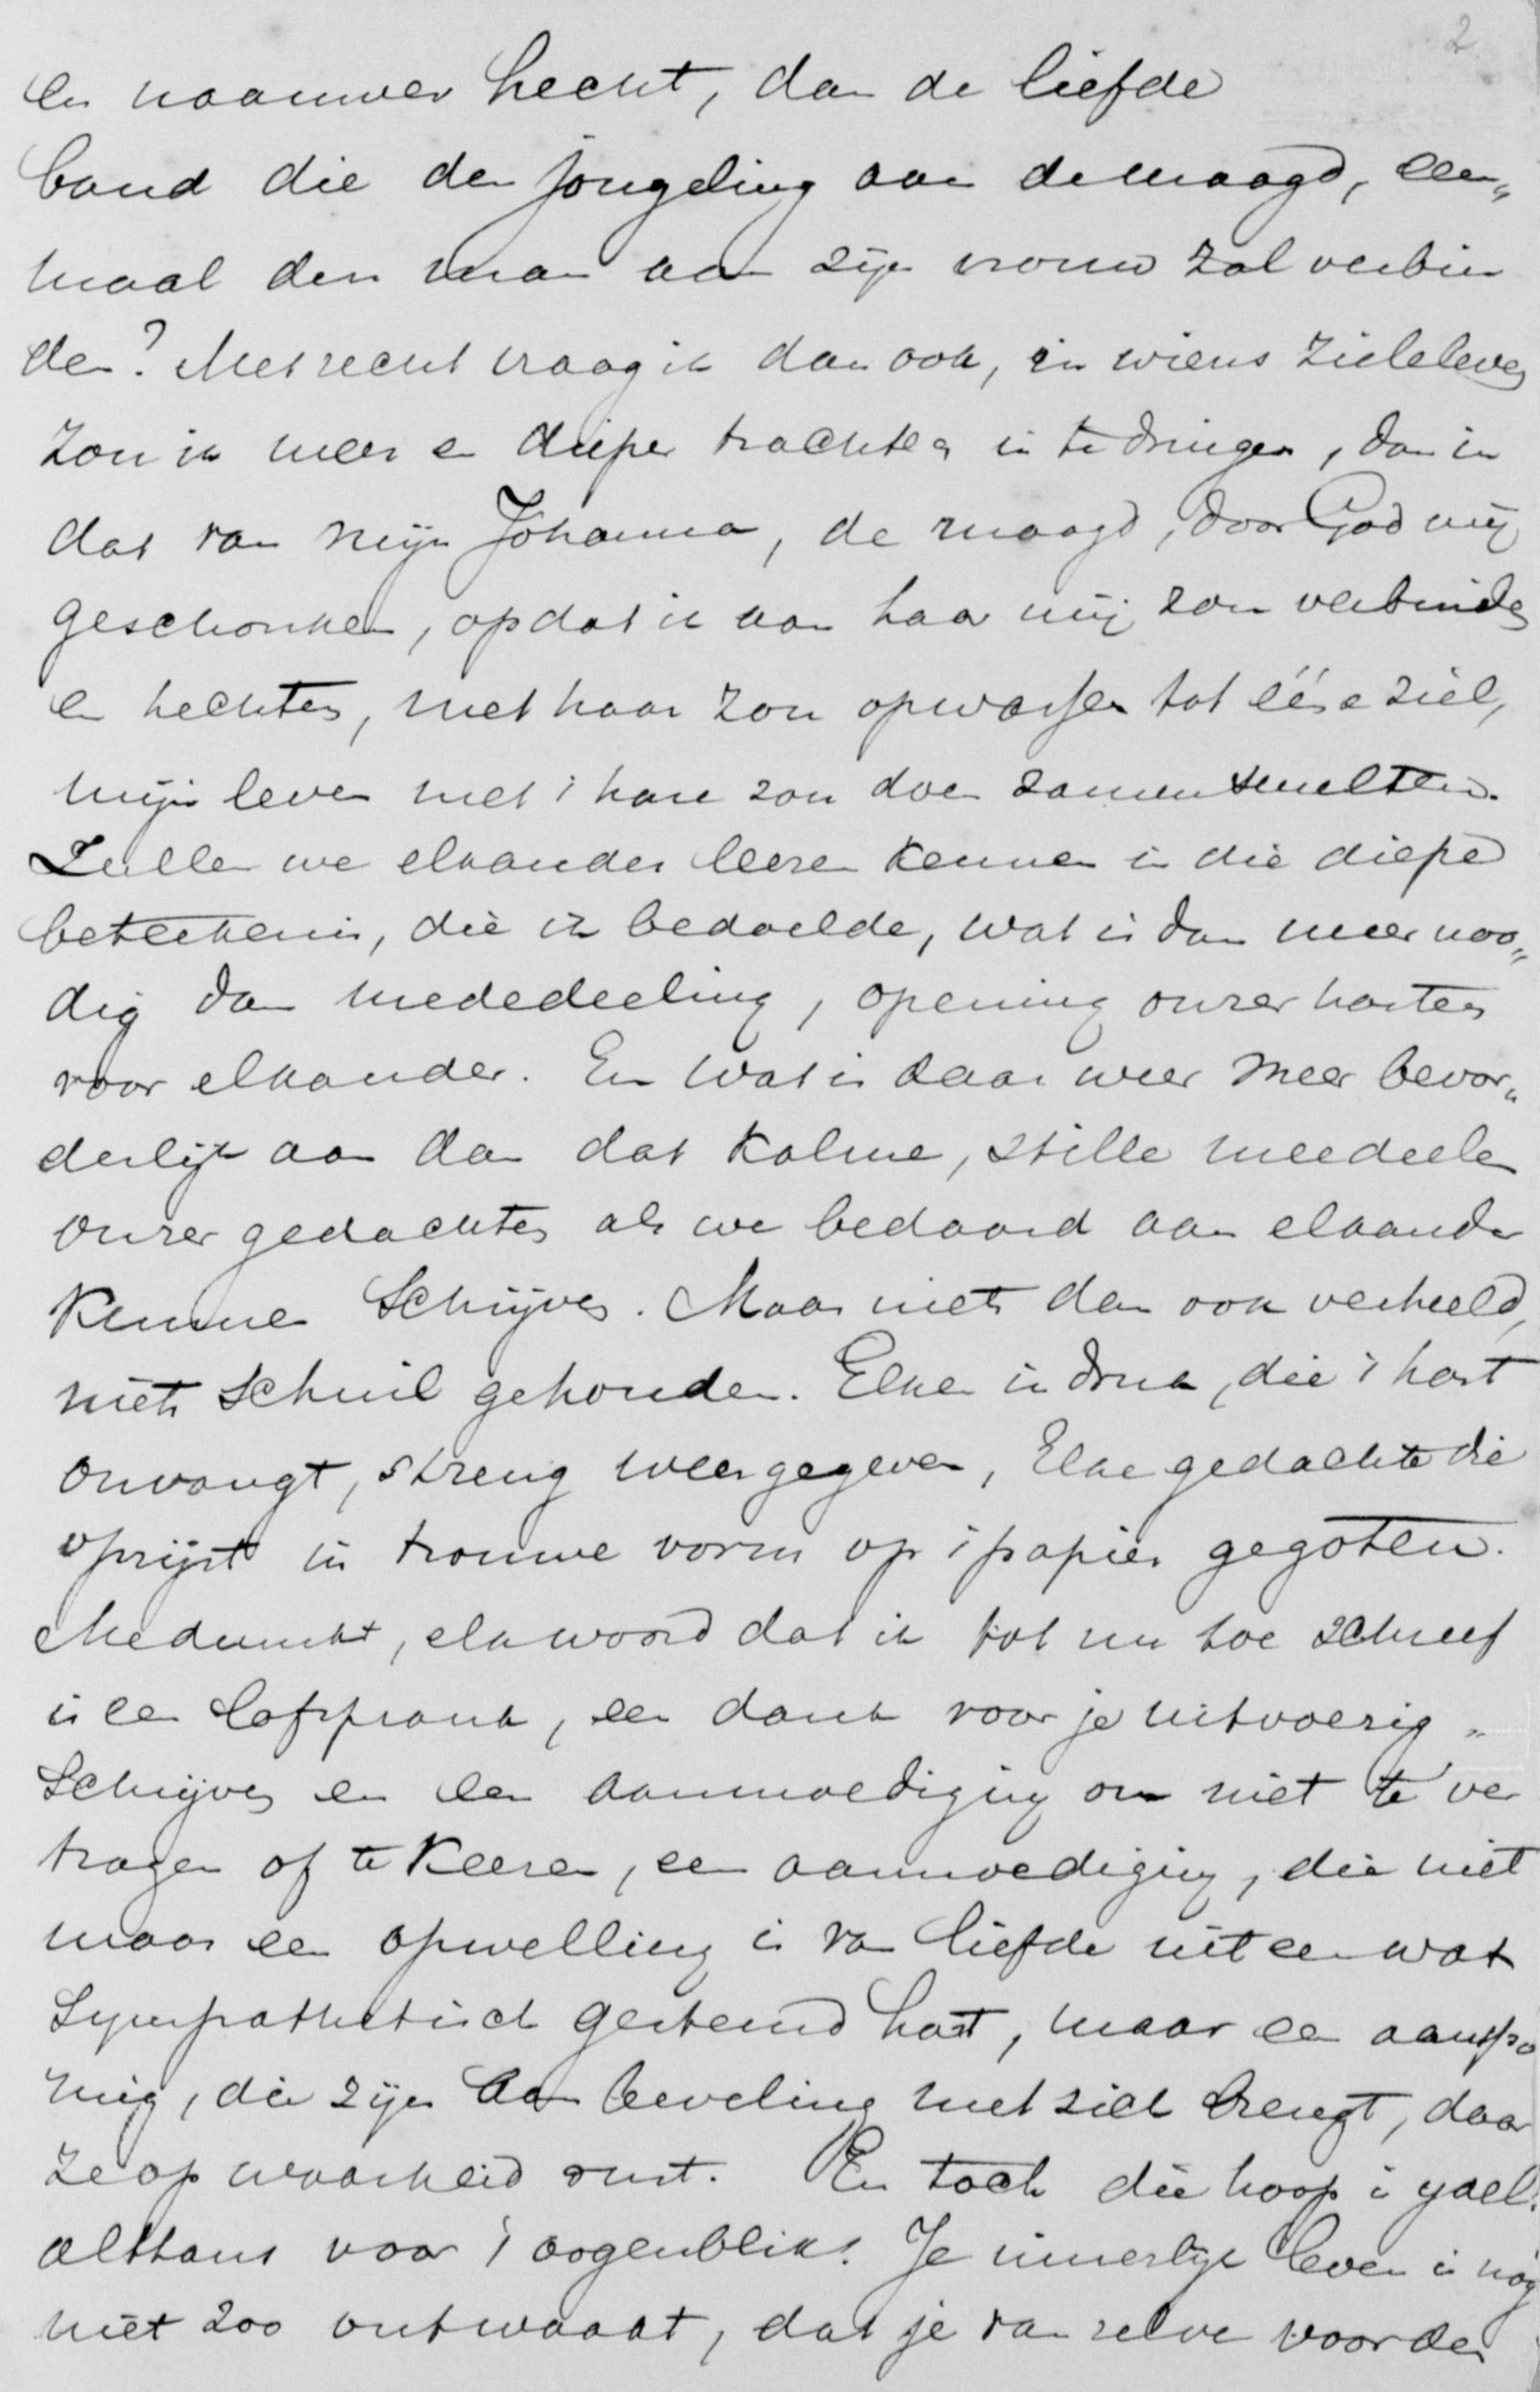 2
en naauwer hecht, dan de liefde
band die den jongeling aan de maagd, een„
maal den man aan zijn vrouw zal verbin
den? Met recht vraag ik dan ook, in wiens zieleleven
zou ik meer en dieper trachten in te dringen, dan in
dat van mijn Johanna, de maagd, door God mij
geschonken, opdat ik aan haar mij zou verbinden
en hechten, met haar zou opwassen tot ééne ziel,
mijn leven met 't hare zou doen zamensmelten.
Zullen we elkander leeren kennen in die diepe
beteekenis, die ik bedoelde, wat is dan meer noo„
dig dan mededeeling, opening onzer harten
voor elkander. En wat is daar weer meer bevor„
derlijk aan dan dat kalme, stille meedeelen
onzer gedachten als we bedaard aan elkander
kunnen schrijven. Maar niets dan ook verheeld,
niets schuil gehouden. Elken indruk, die 't hart
onvangt, streng weergegeven, Elke gedachte die
oprijst in trouwe vorm op 't papier gegoten.
Medunkt, elk woord dat ik tot nu toe schreef
is een lofspraak, een dank voor je uitvoerig„
schrijven en een aanmoediging om niet te ver
tragen of te keeren, een aanmoediging, die niet
maar een opwelling is van liefde uit een wat
sympathetisch gestemd hart, maar een aanspo
ring, die zijn aanbeveling met zich brengt, daar
ze op waarheid rust. En toch die hoop is ydel.
althans voor 't oogenblik. Je innerlijk leven is nog
niet zoo ontwaakt, dat je van zelve voor den